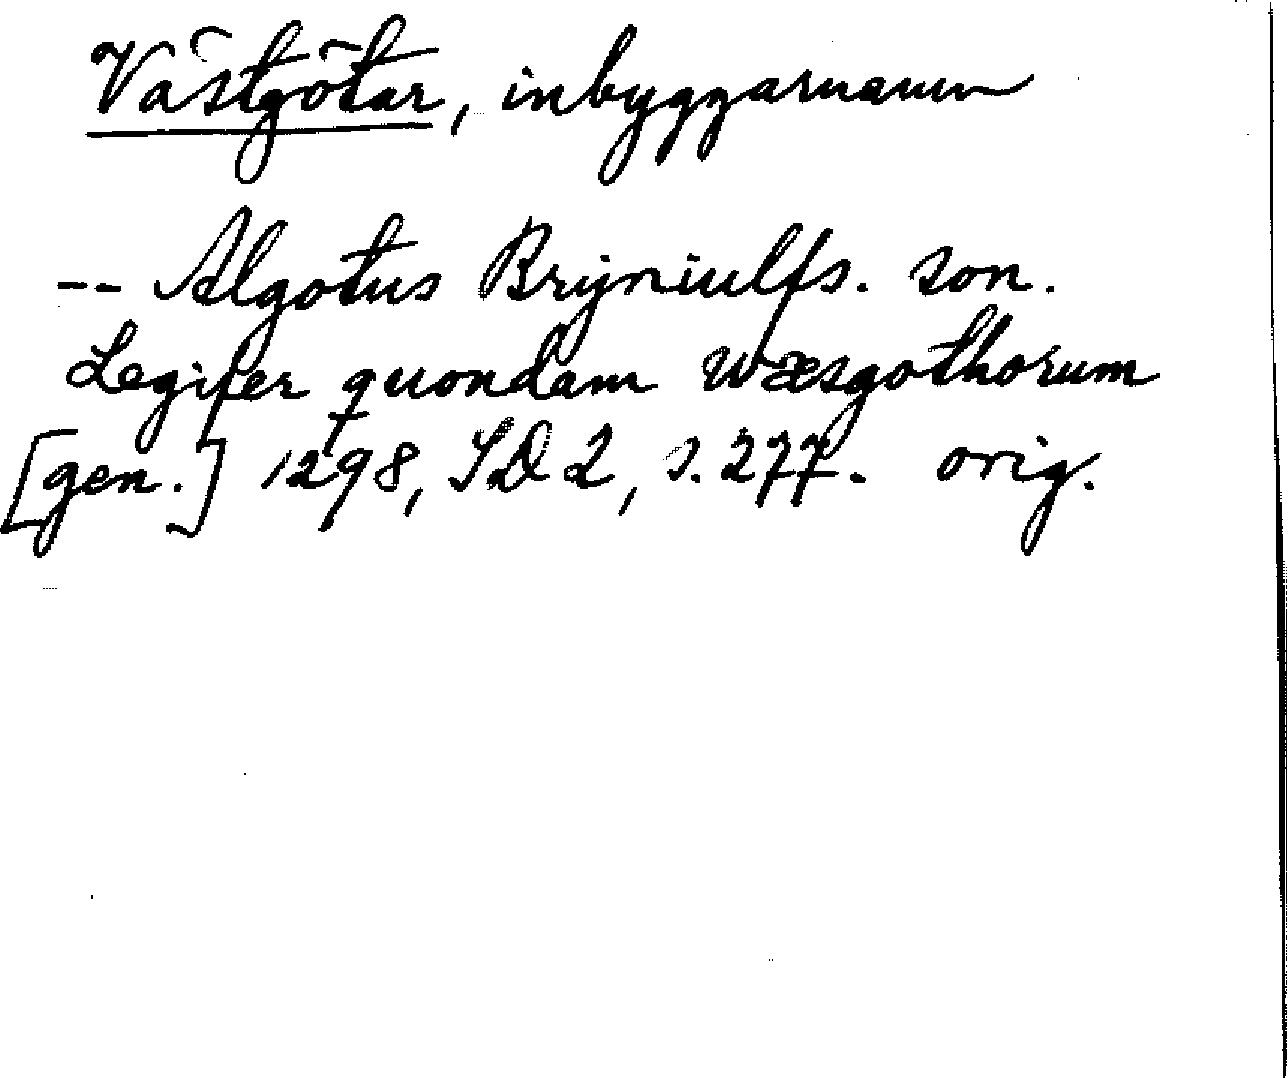 Västgötar, inbyggarnamn
-- Algotus Bryniulfs. son.
Legifer quondam wæsgothorum
[gen.] 1298, SD 2, s. 277. orig.